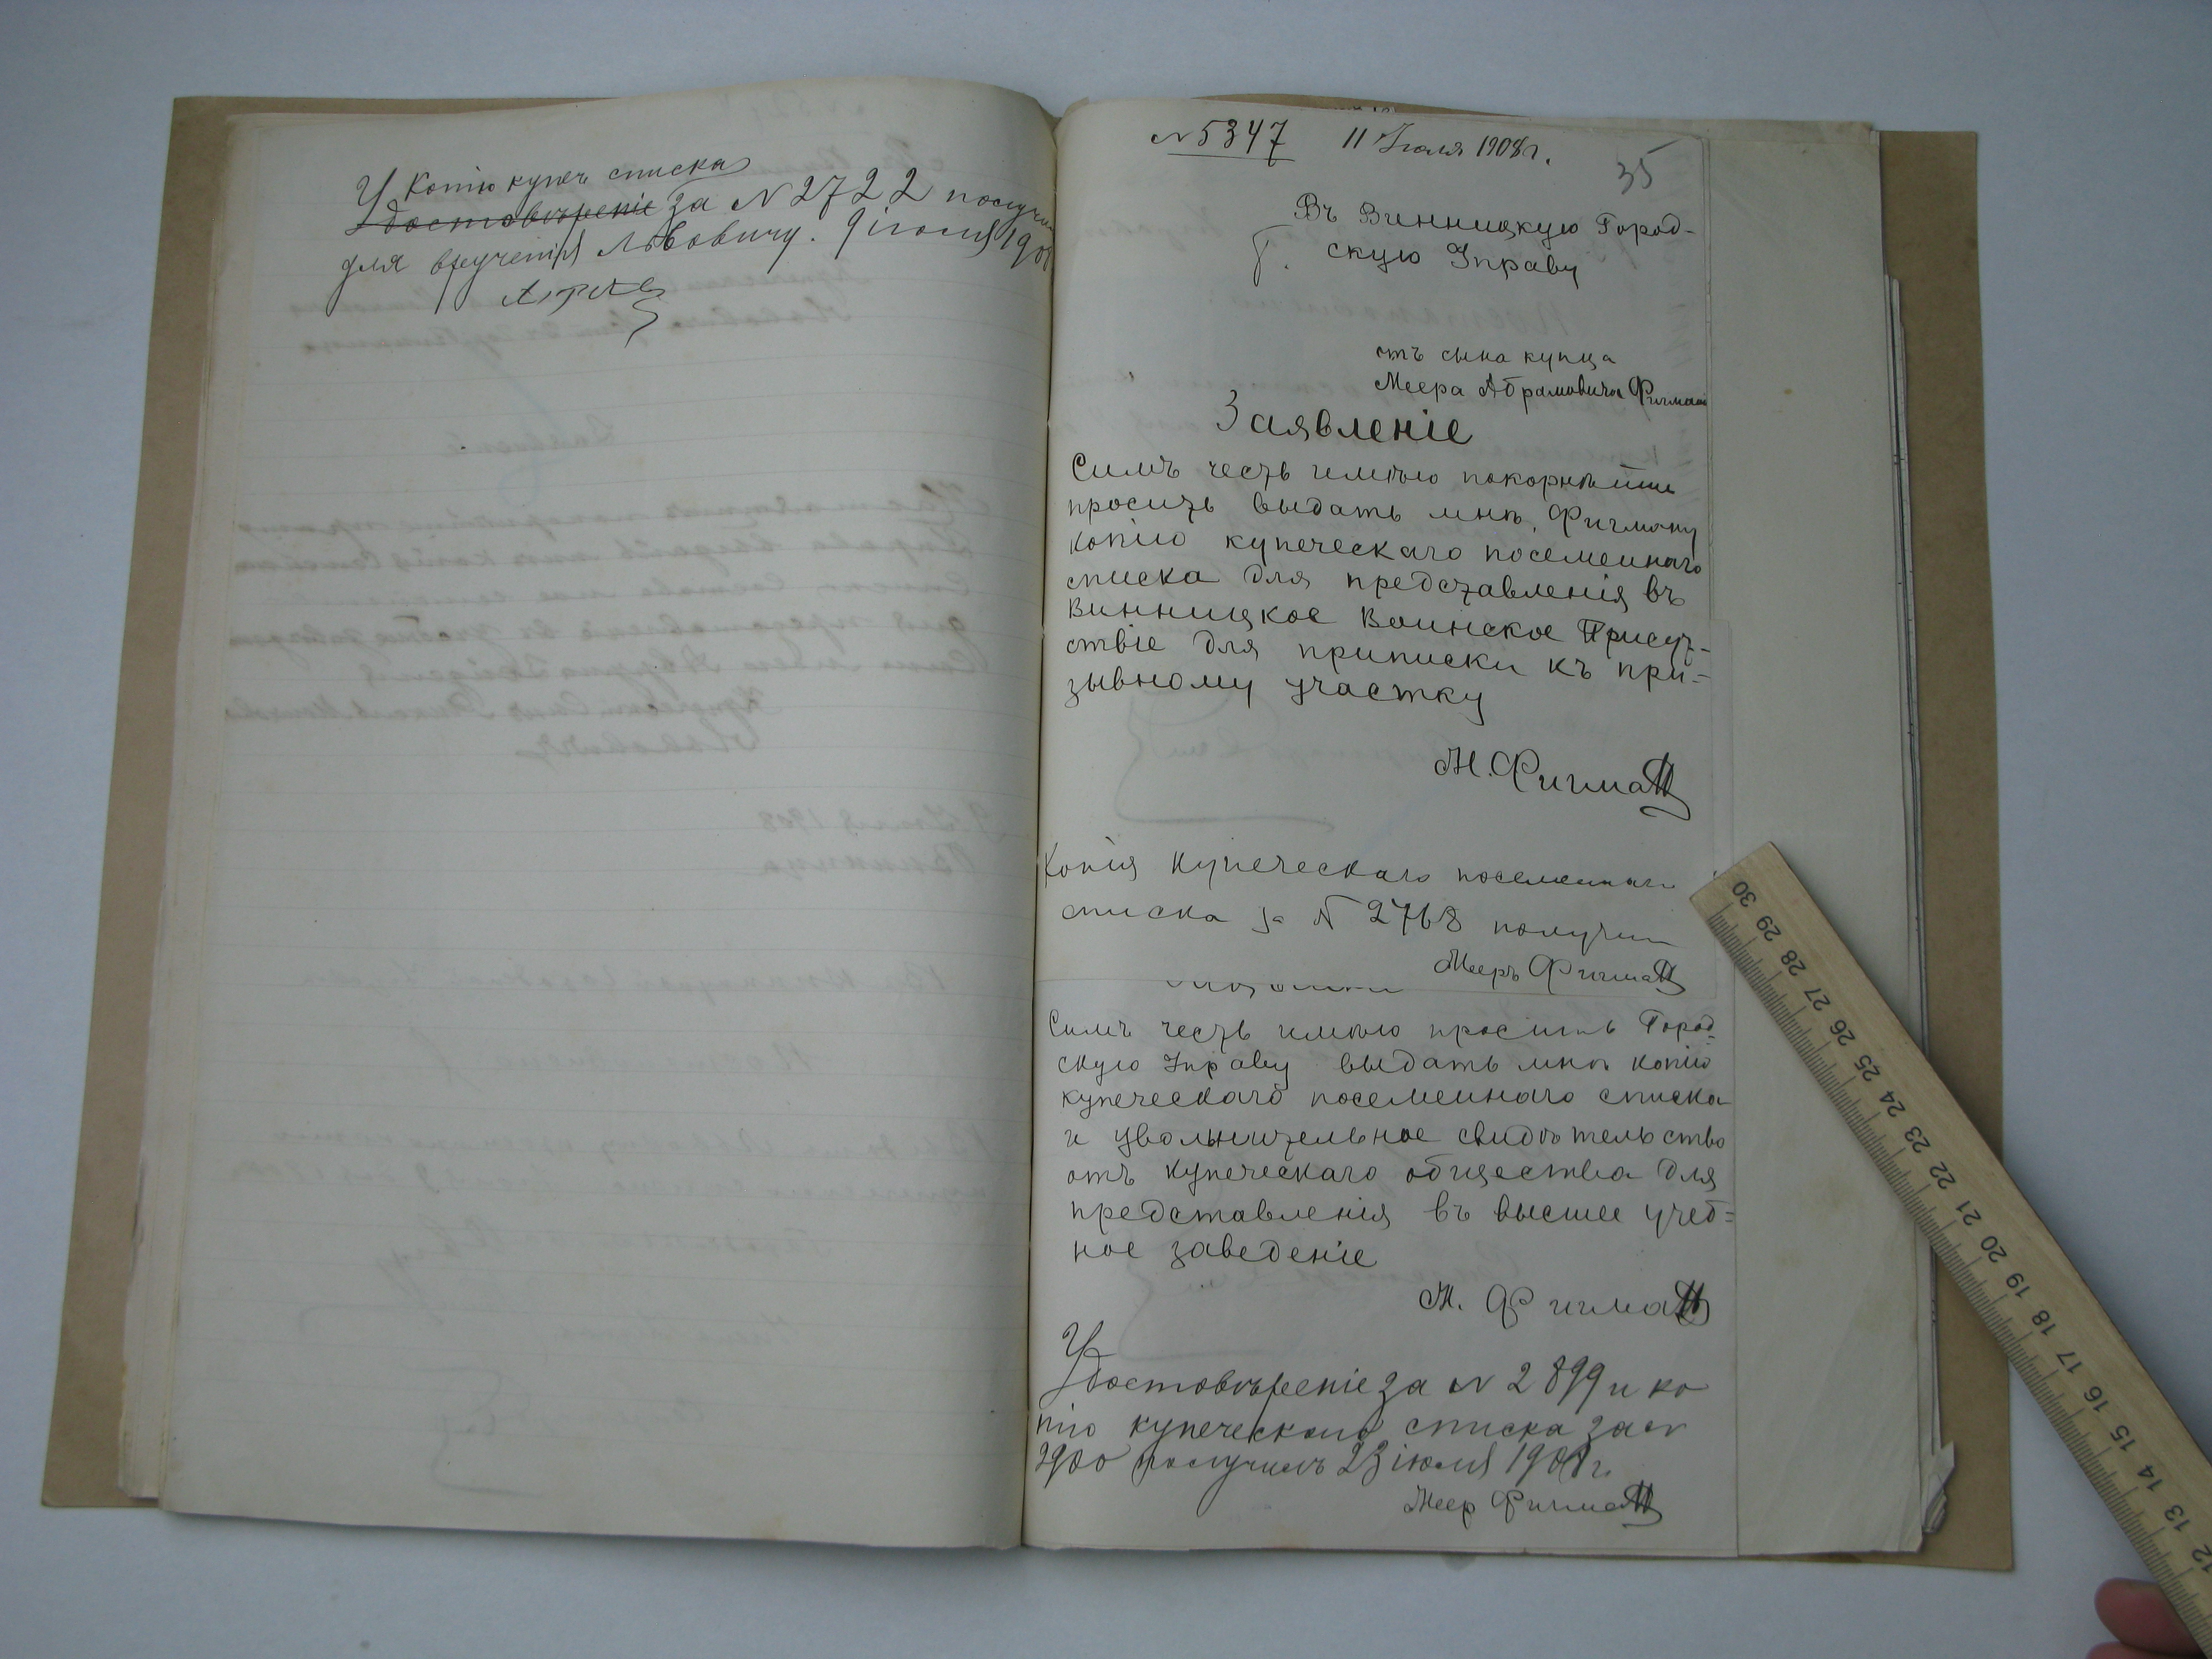 Копію купеч списка
Удостовѣреніе за № 2722 получил
для врученія Львовичу. 9 іюля 190
№ 5347 11 Іюля 1908 г.
35
Въ Винницкую Город-
Г. скую Управу
отъ сына купца
Меера Абрамовича Фигман
Заявленіе
Симъ честь имѣю покорнѣйше
просить выдать мнѣ, Фигману
копію купеческаго посемейнаго
списка для представленія въ
Винницкое Воинское Присут-
ствіе для приписки къ при-
зывному участку
М. Фигман
Копія купеческаго посемейнаго
списка за № 2768 получил
Мееръ Фигман
Симъ честь имѣю просить Город-
скую Управу выдать мнѣ копію
купеческаго посемейнаго списка
и увольнительное свидѣтельство
отъ купеческаго общества для
представленія въ высшее учеб=
ное заведеніе
М. Фигман
Удостовѣреніе за № 2899 и ко
пію купеческаго списка за №
2900 получилъ 23 іюля 1908 г.
Меер Фигман